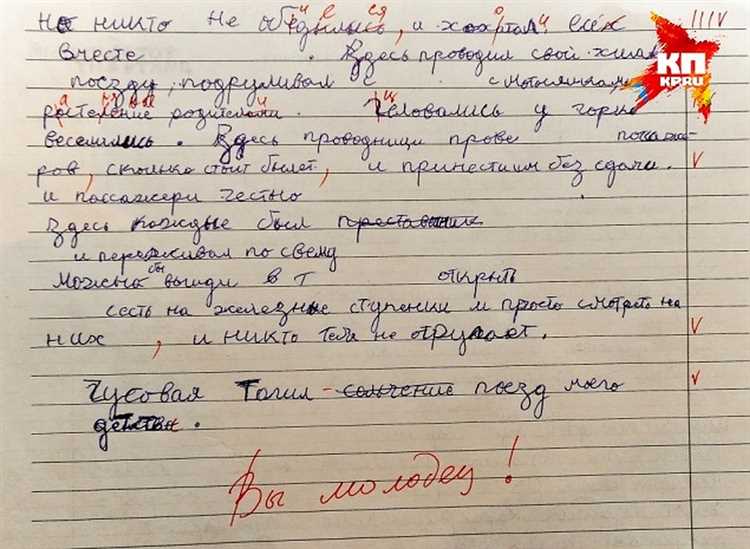 но никто не обедились, и хохотали всех IIIV
Вместе . Здесь проводил свой
КП
KP.RU
поезду, подруливал с
ростеление родителями. Целовались у горно
веселились. Здесь проводници прове пасса
ров, сколько стоит былет, и принести им без сдачи. V
и пассажери честно
Здесь каждые был
и переживал по свему
Можно бы выиди в т открыть
сесть на железные ступенки и просто смотреть на
них, и никто тебя не отругает. V
Чусовая Тагил - поезд моего V
детства.
Вы молодец!